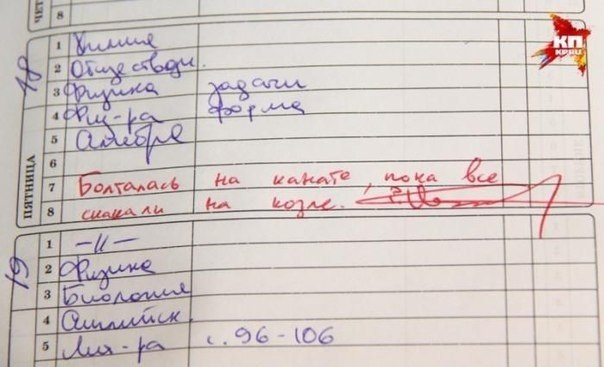 ЧЕТ
8
18
ПЯТНИЦА
1 Химия
2 Обществозн.
3 Физика задачи
4 Физ-ра форма
5 Алгебра
6
7 Болталась на канате, пока все
8 скакали на козле.
19
1 -//-
2 Физика
3 Биология
4 Английск.
5 Лит-ра с. 96-106
КП
KP.RU